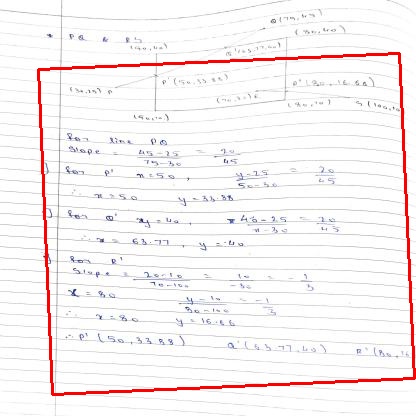 * PQ & RS
(50,40)
Q(75,45)
(80,40)
Q'(63.77,40)
P'(50,33.88)
R'(80,16.66)
(30,25) P
(70,20)R
(50,10)
(80,10)
For line PQ
Slope = 45-25 / 75-30 = 20 / 45
For P' x=50, y-25 / 50-30 = 20 / 45
∴ x=50 y=33.88
For Q' y=40, 40-25 / x-30 = 20 / 45
∴ x = 63.77, y=40
For R'
Slope = 20-10 / 70-100 = 10 / -30 = -1 / 3
x = 80 y-10 / 80-100 = -1 / 3
∴ x=80 y=16.66
∴ P'(50,33.88) Q'(63.77,40) R'(80,16